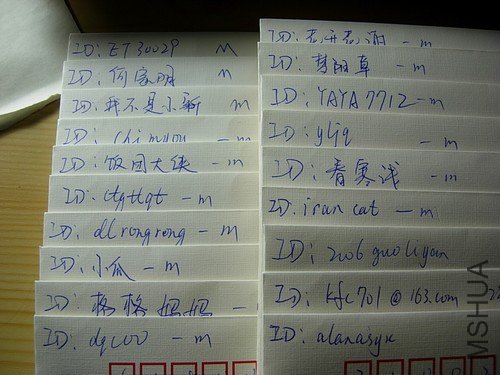 ID: ET30029 M
ID: 何家明 m
ID: 我不是小新 m
ID: chimyou - m
ID: 饭团大侠 - m
ID: ctgttgt - m
ID: dlrongrong - m
ID: 小瓜 - m
ID: 格格妞妞 -
ID: dqc00 - m
ID: - m
ID: 梦幽草 - m
ID: YAYA7712 - m
ID: yljq - m
ID: 春寒浅 - m
ID: iran cat - m
ID: 2006guoliyan
ID: kfc701@163.com
ID: alanasyx
MSHUA